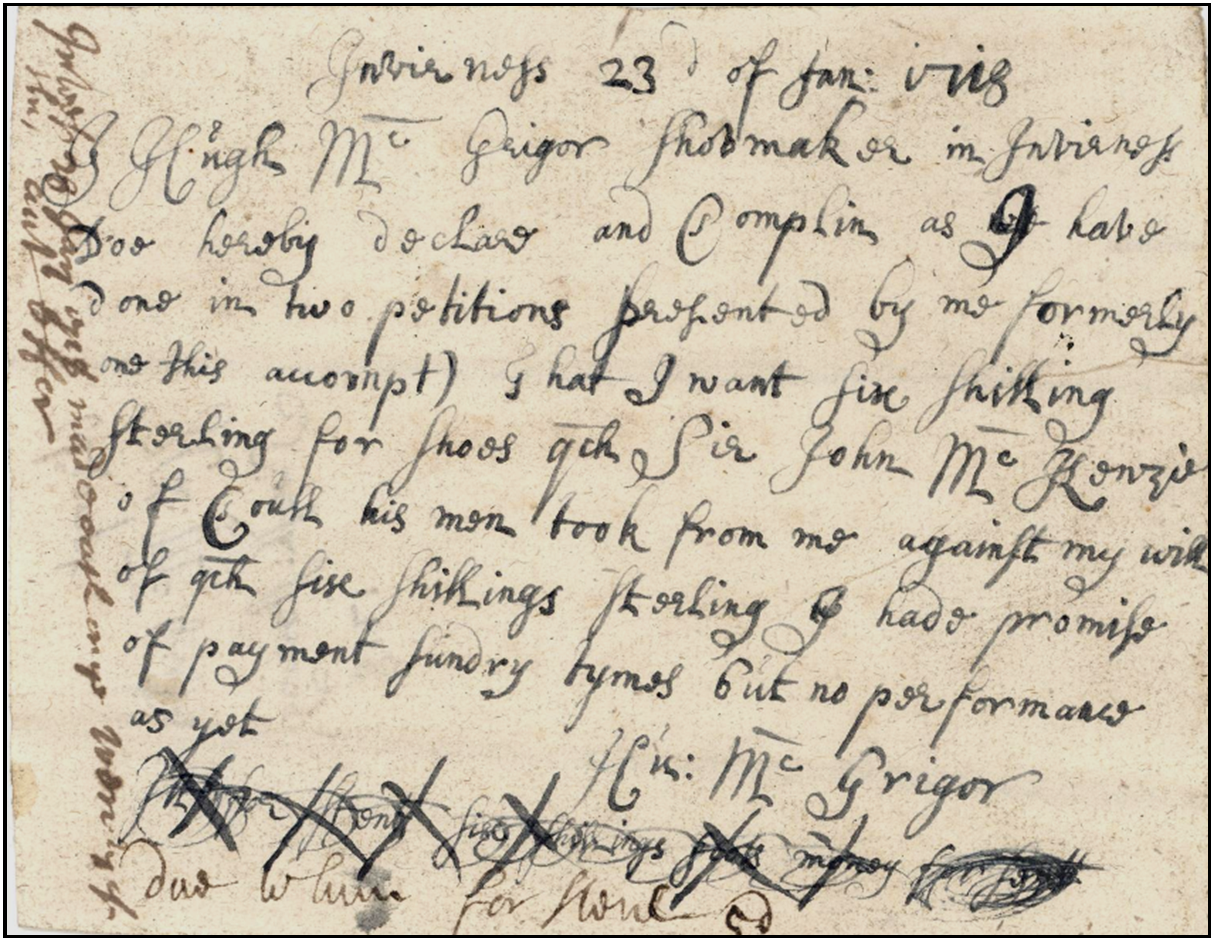 Invirness 23d of Jan: 1718
I Hugh Mc Grigor shoemaker in Invirness
Doe hereby declare and Complin as I have
done in two petitions presented by me formerly
one this accompt) that I want sixe shilling
sterling for shoes qch Sir John Mc Kenzie
of Coull his men took from me against my will
of qch sixe shillings sterling I hade promise
of payment sundry tymes but no performance
as yet
Hu: Mc Grigor
sixe shillings Scots money
due to him for
Inverness Jan